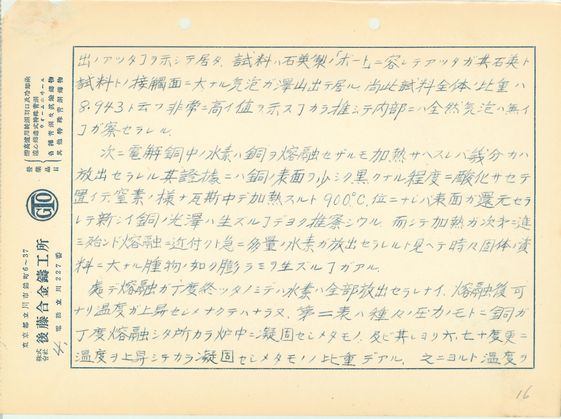 出ノアツタヿヲ示シテ居ル、試料ハ石英製ノ「ボート」ニ容レテアツタガ其石英ト
試料トノ接觸面ニ大ナル気泡ガ澤山出テ居ル、尚此試料全体ノ比重ハ
8.943ト云フ非常ニ高イ値ヲ示スヿカラ推シテ内部ニハ全然気泡ハ無イ
ヿガ察セラレル。
次ニ電解銅中ノ水素ハ銅ヲ熔融セザルモ加熱サヘスレバ幾分カハ
放出セラレル其證據ニハ銅ノ表面ヲ少シク黒クナル程度ニ酸化サセテ
置イテ、窒素ノ様ナ瓦斯中デ加熱スルト900℃位ニナレバ表面ガ還元セラ
レテ新シイ銅ノ光澤ハ生ズルヿデヨク推察シウル、而シテ加熱ガ次第ニ進
ミ殆ンド熔融ニ近付クト急ニ多量ノ水素ガ放出セラレルト見ヘテ時々固体ノ資
料ニ大ナル腫物ノ如ク膨ラミヲ生ズルヿガアル。
処デ熔融ガ丁度終ツタノミデハ水素ハ全部放出セラレナイ、熔融後可
ナリ温度ガ上昇セシメナクテハナラヌ、第二表ハ種々ノ圧力ノモトニ銅ガ
丁度熔融シタ所カラ炉中ニ凝固セシメタモノ、及ビ其レヨリ六、七十度更ニ
温度ヲ上昇シテカラ凝固セシメタモノノ比重デアル、之ニヨルト温度ヲ
16
營業品目
GTO
株式会社 後藤合金鑄工所
東京都立川市錦町6~37
電話立川227番